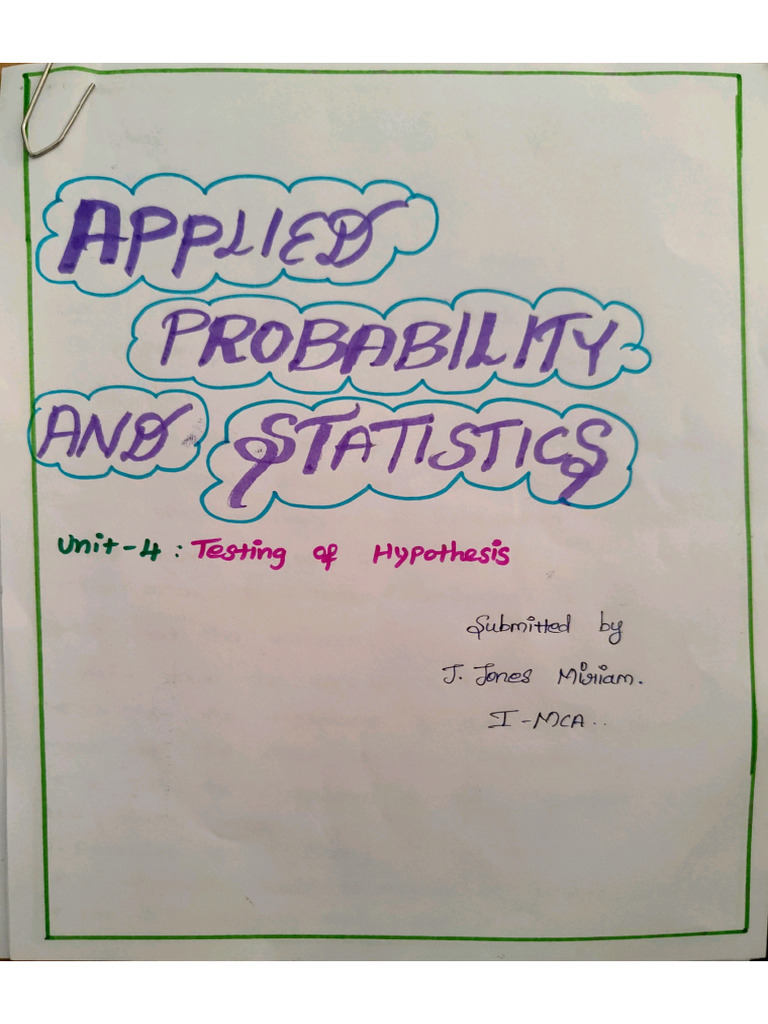 APPLIED
PROBABILITY
AND STATISTICS
Unit-4: Testing of Hypothesis
Submitted by
J. Jones Miriam.
I-MCA..